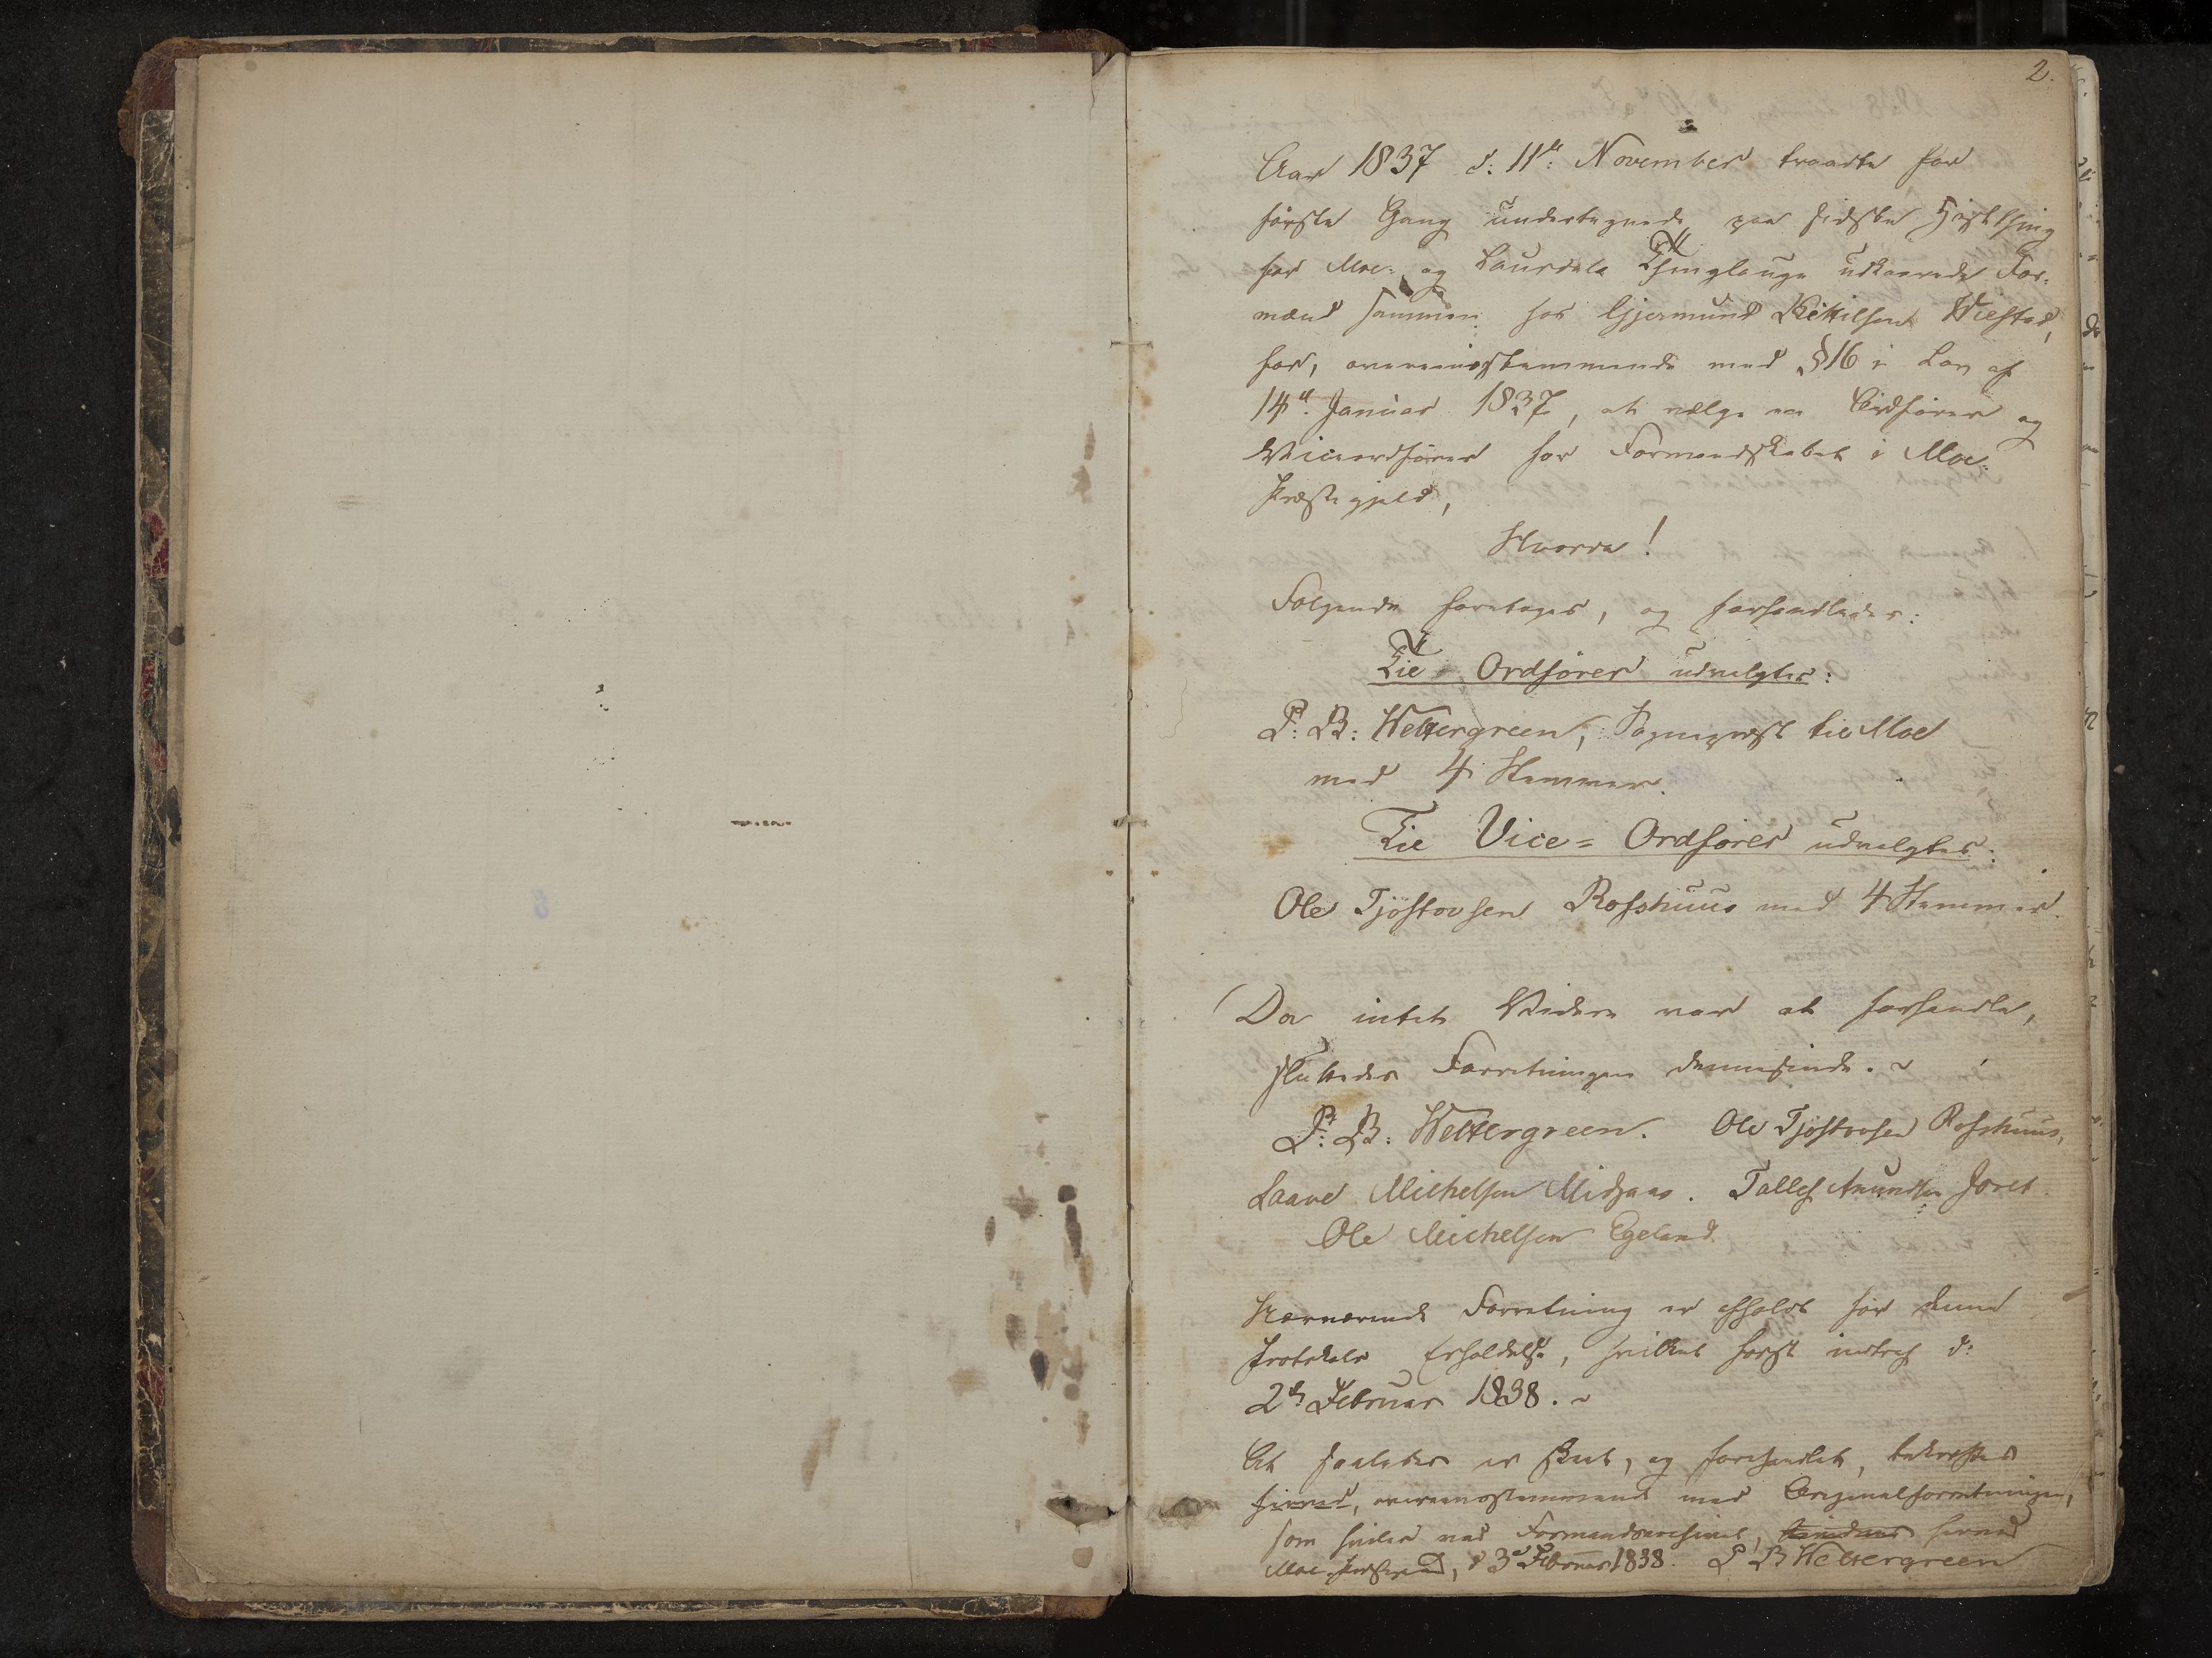 2.
Aar 1837 d: 11te November traadte for
første Gang undertegnede paa sidste Høstthing
for Moe- og Laurdals Thinglauge udkaarede For-
mænd sammen hos Gjermund Kittilsen Wiestad,
for, overeensstemmende med §16 i Lov af
14de Januar 1837, at vælge en Ordfører og
Viceordfører for Formandskabet i Moe-
Præstegjeld,
Hvorda!
Følgende foretoges, og forhandledes:
Til Ordfører udvalgtes:
P: B: Wettergreen, Sognepræst til Moe
med 4 Stemmer.
Til Vice=Ordfører udvalgtes:
Ole Tjöstovsen Rosshuus med 4 Stemmer.
Da intet Videre var at forhandle,
sluttedes Forretningen dennesinde.
P: B: Wettergreen. Ole Tjøstovsen Rosshuus,
Laave Michelsen Midgaas. Tallef Anundsen
Ole Michelsen Egeland
Nærværende Forretning er afholdt før denne
Protokols Erholdelse, hvilket først indtraf d:
2den Februar 1838.
At saaledes er skeet, og forhandlet, bekræftes
herved, overeensstemmende med Originalforretningen,
som hviler ved Formandsarchivet, herved
Moe Præstegaard, d 3de Februar 1838. P B Wettergreen